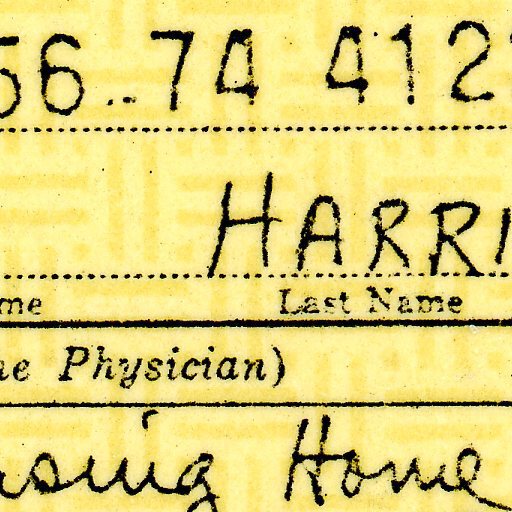 56..74 412
HARRI
me Last Name
he Physician)
rsing Home